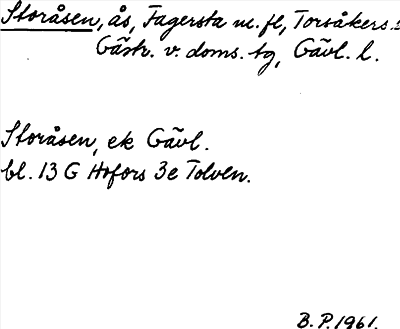 Storåsen, ås, Fagersta m. fl, Torsåkers s
Gästr. v. doms. tg, Gävl. l.
Storåsen, ek Gävl.
bl. 13 G Hofors 3e Tolven.
B.P. 1961.